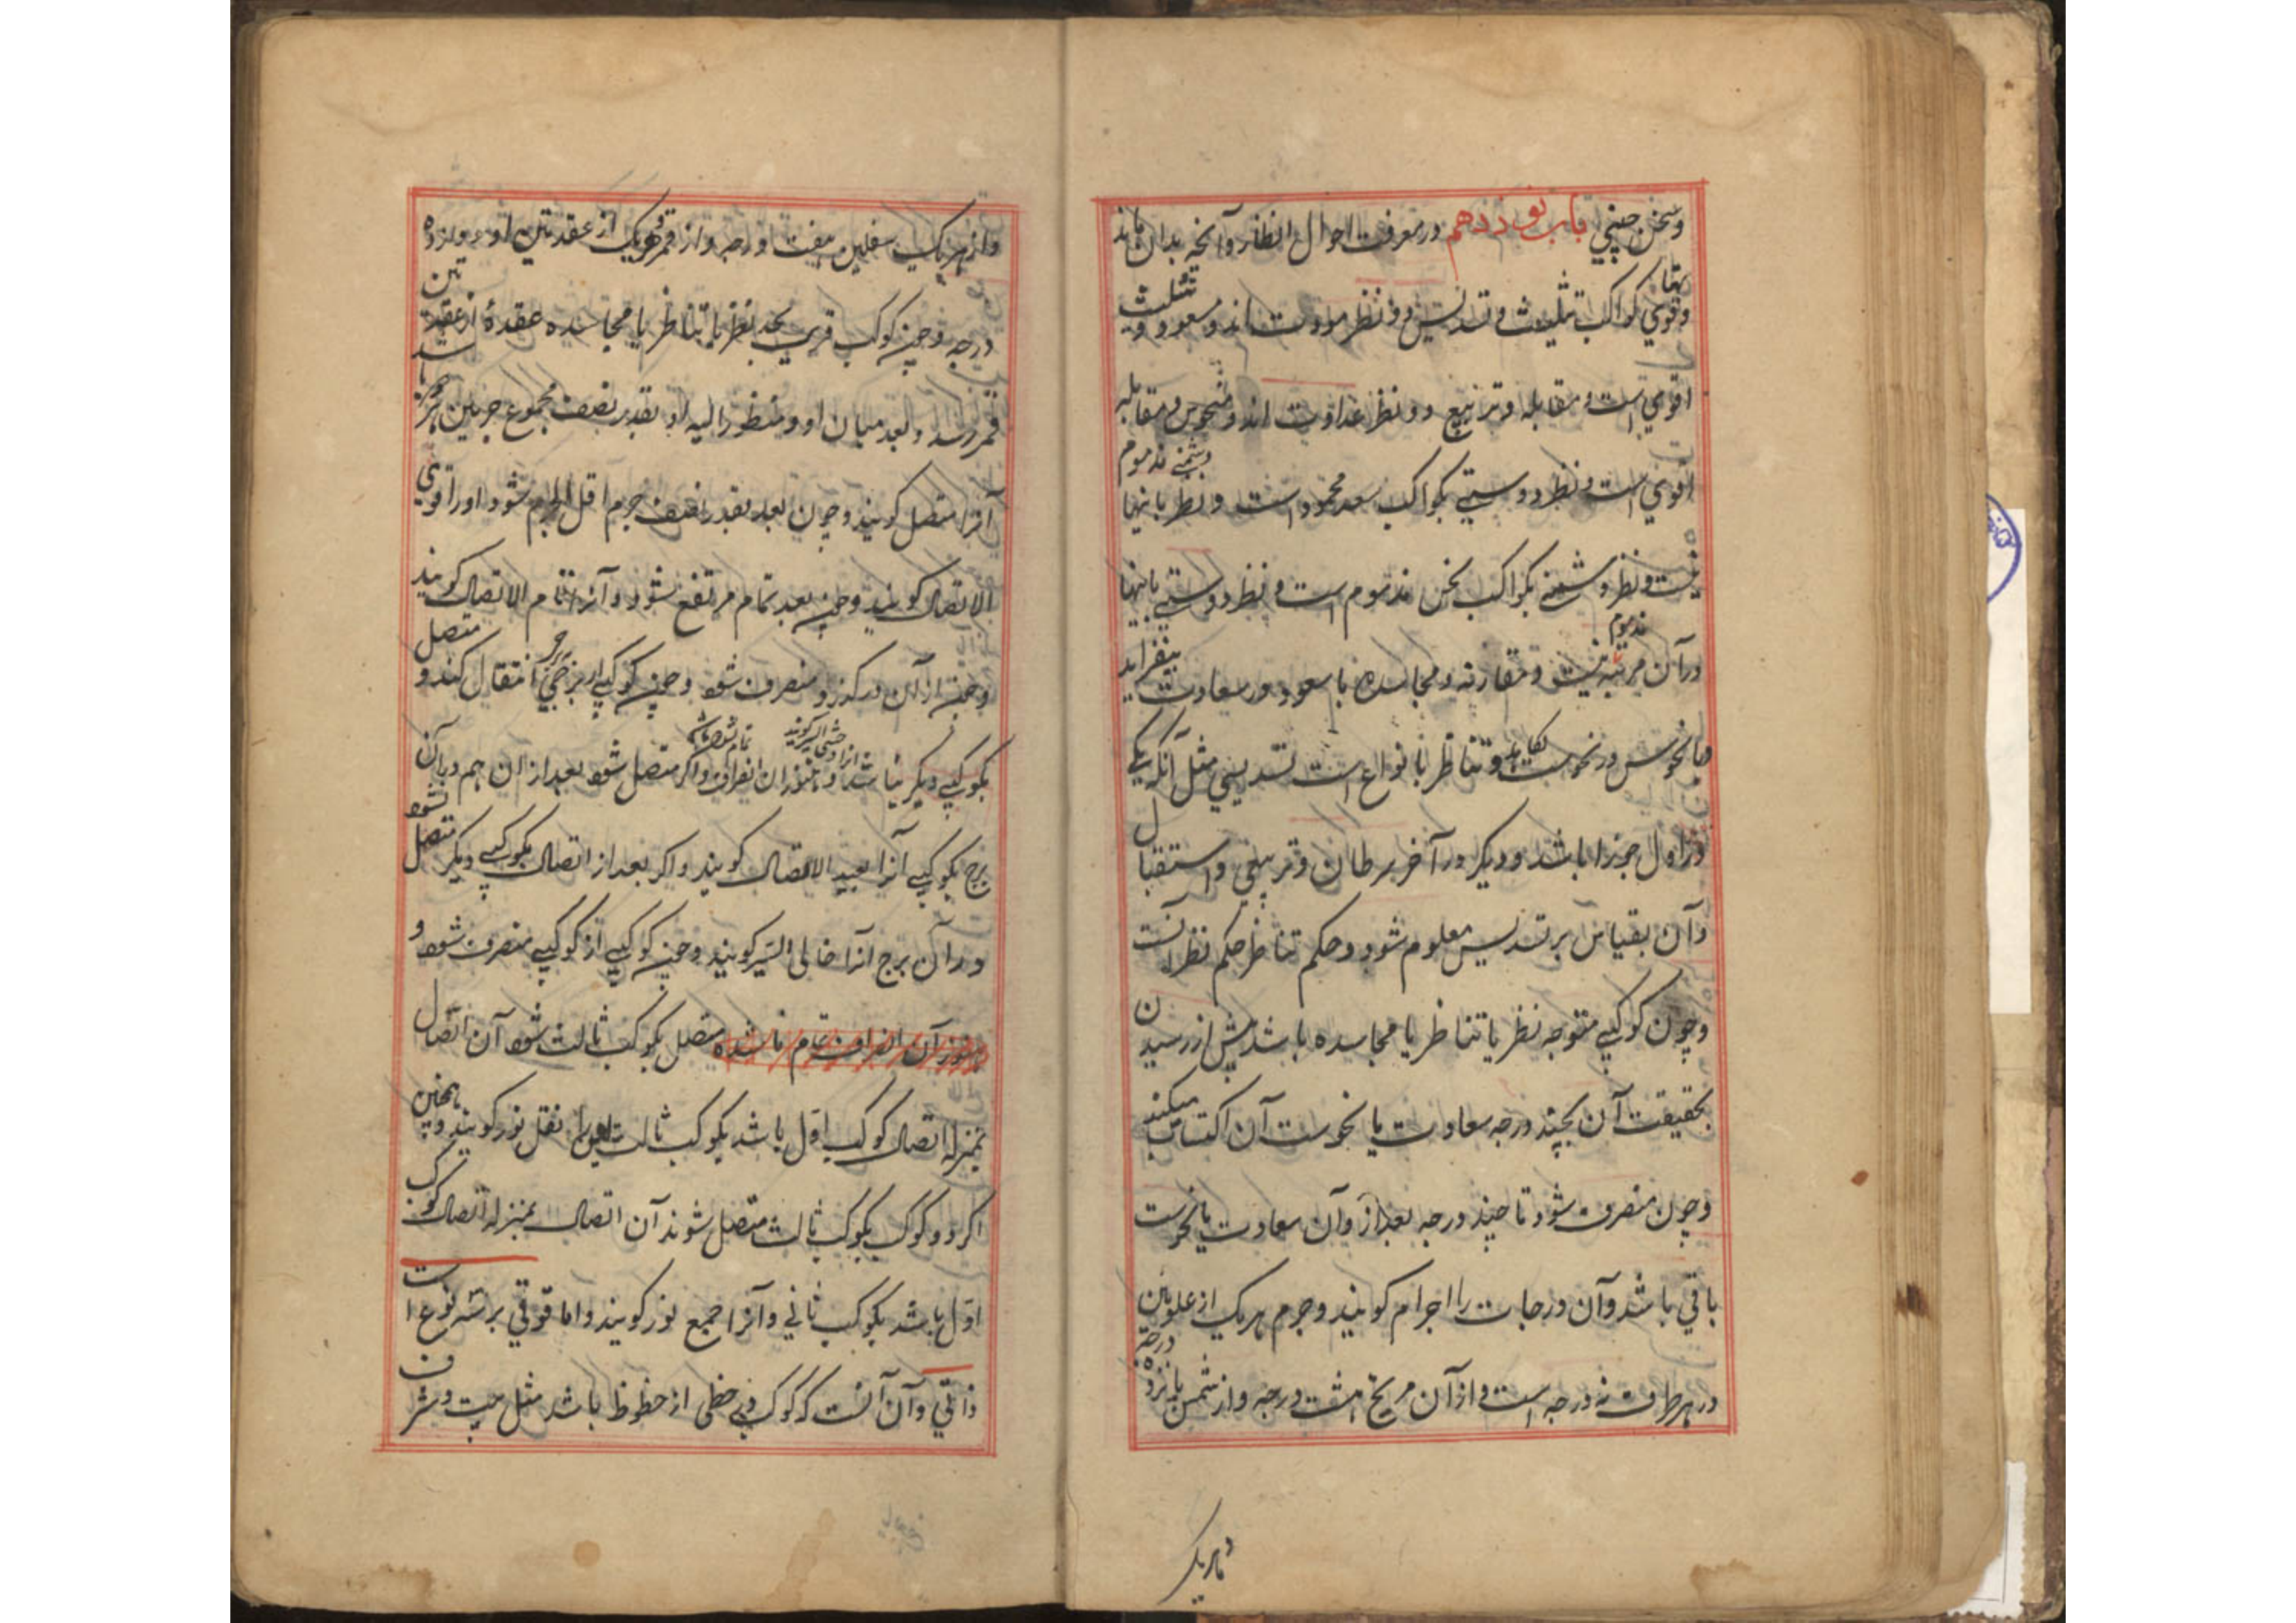 وسخن چینی باب نوزدهم در معرفت احوال انظار وآنچه بدان ماند
وقوی کواکب تثلیث وتسدیس دو نظر مودت اند ومسعود وتثلیث
اقوی است ومقابله وتربیع دو نظر عداوت اند ومنحوس ومقابله
اقوی است ونظر دوستی بکواکب سعد محمود است ونظر بانها
دشمنی مذموم
نیست ونظر دشمنی بکواکب نحس مذموم است ونظر دوستی بانها
در آن مرتبه مذموم نیست ومقارنه ومجاسده با سعود در سعادت بیفزاید
وبا نحوس در نحوست وتناظر بانواع است تسدیسی مثل آنکه یکی
در اول جوزا باشد ودیکر در آخر سرطان وتربیعی واستقبال
وآن بقیاس بر تسدیس معلوم شود وحکم تناظر حکم نظر است
وچون کوکبی متوجه نظر یا تناظر یا مجاسده باشد پیش از رسیدن
بحقیقت آن بچند درجه سعادت یا نحوست آن اکتساب میکند
وچون منصرف شود تا چند درجه بعد از وآن سعادت یا نحوست
باقی باشد وآن درجات را اجرام کویند وجرم هریک از علویین
در هر طرف نه درجه است واز آن مریخ هشت درجه واز شمس پانزده درجه
واز هریک
واز هریک سفلیین هفت درجه واز قمر وهریک از عقدتین او دوازده
درجه وچون کوکب قریب بحد نظر یا تناظر یا مجاسده عقدهٔ از عقدتین
قمر رسد وبعد میان او ومنظور الیه او بقدر نصف مجموع جرمین باشد
آنرا متصل کویند وچون بعد بقدر نصف جرم اقل الجرم شود اورا قوی
الاتصال کویند وچون بعد تمام مرتفع شود آنرا تمام الاتصال کویند
وچون از آن درکذرد منصرف شود وچون کوکبی از برجی انتقال کند ومتصل
بکوکبی دیکر نباشد وهنوز آن انصراف واکر متصل شود بعد از ان هم در آن
آنرا وحشی السیر کویند تمام نشده باشد
برج بکوکبی آنرا بعید الاتصال کویند واکر بعد از اتصال بکوکبی دیکر متصل نشود
در آن برج آنرا خالی السیر کویند وچون کوکبی از کوکبی منصرف شود و
هنوز آن انصراف تمام ناشده متصل بکوکب ثالث شود آن اتصال
بمنزله اتصال کوکب اول باشد بکوکب ثالث نقل نور کویند وهمچنین
اکر دو کوکب بکوکب ثالث متصل شوند آن اتصال بمنزله اتصال کوکب
اول باشد بکوکب ثانی وآنرا جمع نور کویند واما قوتی بر سه نوع است
ذاتی وآن آنست که کوکب در حظی از حظوظ باشد مثل بیت وشرف